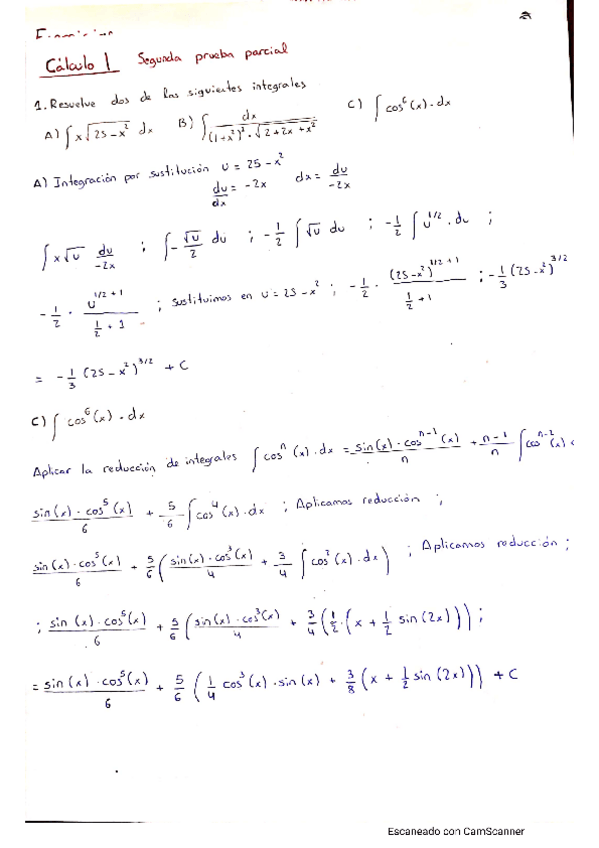 Cálculo 1 Segunda prueba parcial
1. Resuelve dos de las siguientes integrales
A) ∫ x√(25-x²) dx B) ∫ dx/((1+x²)²·√(2+2x+x²)) C) ∫ cos⁶(x)·dx
A) Integración por sustitución u = 25-x²
du/dx = -2x dx = du/-2x
∫ x√u du/-2x ; ∫ -√u/2 du ; -1/2 ∫ √u du ; -1/2 ∫ u^(1/2)·du ;
-1/2 · u^(1/2+1)/(1/2+1) ; sustituimos en u = 25-x² ; -1/2 · (25-x²)^(1/2+1)/(1/2+1) ; -1/3 (25-x²)^(3/2)
= -1/3 (25-x²)^(3/2) + C
C) ∫ cos⁶(x)·dx
Aplicar la reducción de integrales ∫ cosⁿ(x)·dx = sin(x)·cosⁿ⁻¹(x)/n + n-1/n ∫ cosⁿ⁻²(x)
sin(x)·cos⁵(x)/6 + 5/6 ∫ cos⁴(x)·dx ; Aplicamos reducción ;
sin(x)·cos⁵(x)/6 + 5/6 (sin(x)·cos³(x)/4 + 3/4 ∫ cos²(x)·dx) ; Aplicamos reducción ;
; sin(x)·cos⁵(x)/6 + 5/6 (sin(x)·cos³(x)/4 + 3/4 (1/2·(x + 1/2 sin(2x)))) ;
= sin(x)·cos⁵(x)/6 + 5/6 (1/4 cos³(x)·sin(x) + 3/8 (x + 1/2 sin(2x))) + C
Escaneado con CamScanner